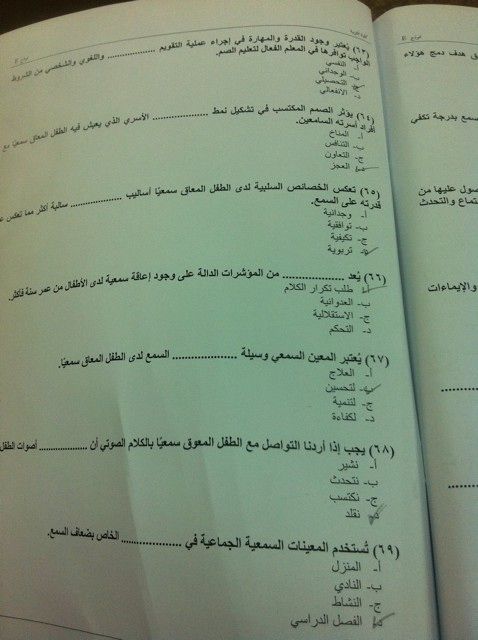 (٦٣) يُعتبر وجود القدرة والمهارة في إجراء عملية التقويم .......... واللغوي والشخصي من الشروط
الواجب توافرها في المعلم الفعال لتعليم الصم.
أ- النفسي
ب- الوجداني
التحصيلي
د- الانفعالي
(٦٤) يؤثر الصمم المكتسب في تشكيل نمط .......... الأسري الذي يعيش فيه الطفل المعاق سمعيًا مع
أفراد أسرته السامعين.
أ- المناخ
ب- التنافس
ج- التعاون
العجز
(٦٥) تعكس الخصائص السلبية لدى الطفل المعاق سمعيًا أساليب .......... سالبة أكثر مما تعكس
قدرته على السمع.
أ- وجدانية
ب- توافقية
ج- تكيفية
تربوية
(٦٦) يُعد .......... من المؤشرات الدالة على وجود إعاقة سمعية لدى الأطفال من عمر سنة فأكثر.
أ- طلب تكرار الكلام
ب- العدوانية
ج- الاستقلالية
د- التحكم
(٦٧) يُعتبر المعين السمعي وسيلة .......... السمع لدى الطفل المعاق سمعيًا.
أ- العلاج
ب- لتحسين
ج- لتنمية
د- لكفاءة
(٦٨) يجب إذا أردنا التواصل مع الطفل المعوق سمعيًا بالكلام الصوتي أن .......... أصوات الطفل
أ- نشير
ب- نتحدث
ج- نكتسب
نقلد
(٦٩) تُستخدم المعينات السمعية الجماعية في .......... الخاص بضعاف السمع.
أ- المنزل
ب- النادي
ج- النشاط
د- الفصل الدراسي
هدف دمج هؤلاء
سمع بدرجة تكفي
صول عليها من
والتحدث
والإيماءات